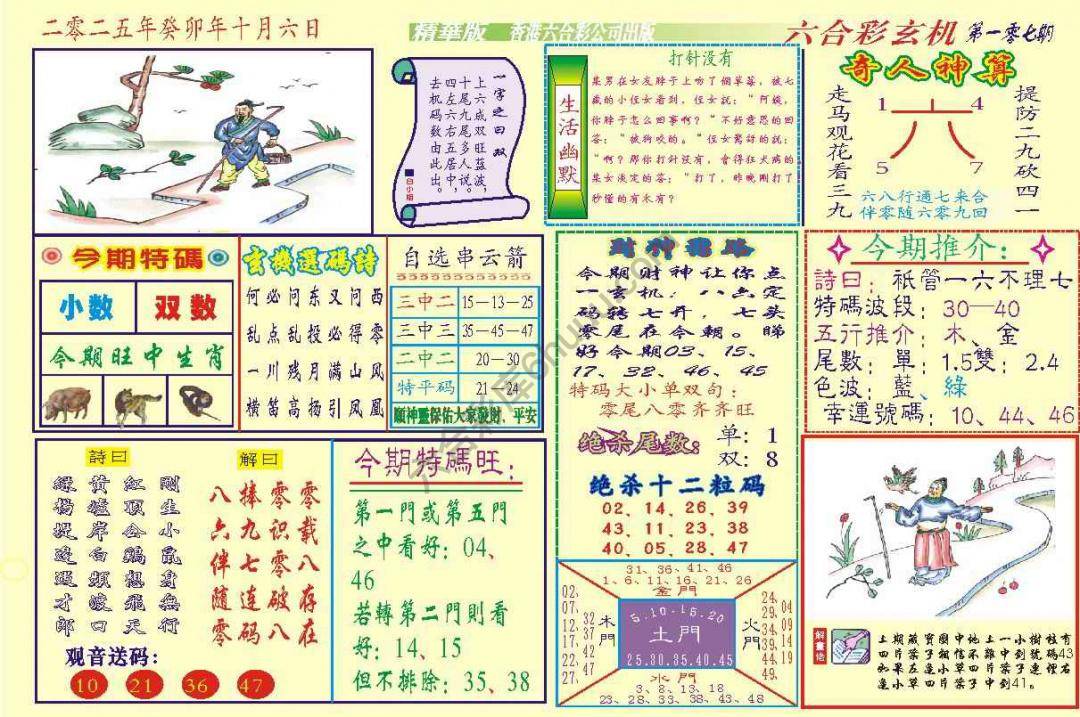 二零二五年癸卯年十月六日
精華版 香港六合彩公司出版
六合彩玄机 第一零七期
一字之曰双
上六成双旺蓝波。
十尾九尾多人说，
四左六右五居中，
去机码数由此出。
白小姐
生活幽默
打针没有
某男在女友脖子上吻了個草莓，被七
歲的小侄女看到，侄女說："阿姨，
你脖子怎么回事啊？"不好意思的回
答："被狗咬的。"侄女驚訝的說：
"啊？那你打针沒有，會得狂犬病的
某女淡定的答："打了，昨晚刚打了
秒懂的有木有？
奇人神算
走马观花看三九
提防二九砍四一
1 4
六
5 7
六八行通七来合
伴零随六零九回
今期特碼
小数 双数
今期旺中生肖
玄機選碼詩
何必问东又问西
乱点乱投必得零
一川残月满山风
横笛高扬引凤凰
自选串云箭
三中二 15—13—25
三中三 35—45—47
二中二 20—30
特平码 21—24
願神靈保佑大家發財、平安
財神龍路
今期财神让你点
一玄机，八六定
码转七开，七头
零尾在今朝。睇
好今期03、15、
17、32、46、45
特码大小单双句：
零尾八零齐齐旺
绝杀尾数： 单：1
双：8
绝杀十二粒码
02、14、26、39
43、11、23、38
40、05、28、47
今期推介：
詩曰：祇管一六不理七
特碼波段：30—40
五行推介：木、金
尾數：單：1.5雙：2.4
色波：藍、綠
幸運號碼：10、44、46
詩曰
刚生小鼠身無行
红顶公鸡想飛天
黄墟岸白頻波口
綠楊堤边遇才郎
解曰
八捧零零
六九识载
伴七零八
随连破存
零码八在
观音送码：
10 21 36 47
今期特碼旺：
第一門或第五門
之中看好：04、
46
若轉第二門則看
好：14、15
但不排除：35、38
31、36、41、46
1、6、11、16、21、26
金門
02、07、12、17、22、27、
32、37、42、47
木門
5.10.15.20
土門
25.30.35.40.45
火門
24、29、34、39、44、49
04、09、14、19
水門
3、8、13、18
23、28、33、38、43、48
解畫佬
土期藏寶圖中地上一小樹枝有
四片葉子相信不難中到號碼43
如果左邊小草四片葉子連埋右
邊小草四片葉子中到41。